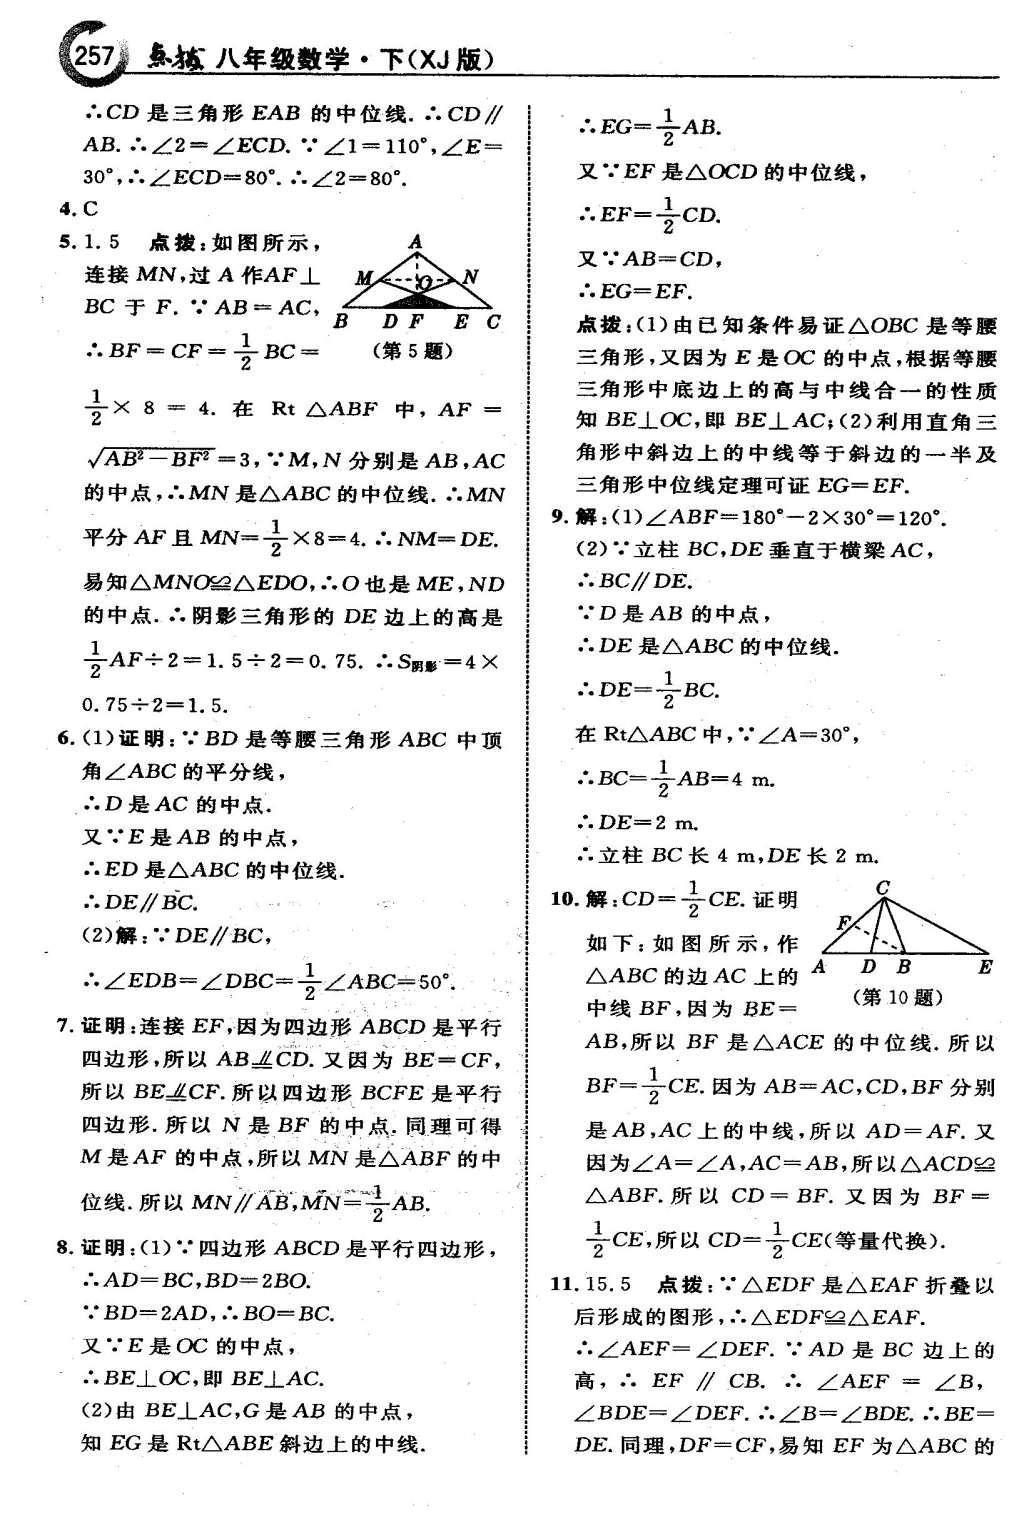 257 点拨 八年级数学·下(XJ版)
∴CD 是三角形 EAB 的中位线. ∴CD∥
AB. ∴∠2=∠ECD. ∵∠1=110°,∠E=
30°,∴∠ECD=80°. ∴∠2=80°.
4. C
5. 1.5 点拨:如图所示,
连接 MN,过 A 作AF⊥
BC 于 F. ∵AB=AC,
∴BF=CF=1/2 BC=
A
M O N
B D F E C
(第5题)
1/2×8=4. 在 Rt△ABF 中, AF=
√(AB²−BF²)=3,∵M,N 分别是 AB,AC
的中点,∴MN 是△ABC 的中位线. ∴MN
平分 AF 且 MN=1/2×8=4. ∴NM=DE.
易知△MNO≌△EDO,∴O 也是 ME,ND
的中点. ∴阴影三角形的 DE 边上的高是
1/2 AF÷2=1.5÷2=0.75. ∴S阴影=4×
0.75÷2=1.5.
6. (1)证明:∵BD 是等腰三角形 ABC 中顶
角∠ABC 的平分线,
∴D 是 AC 的中点.
又∵E 是 AB 的中点,
∴ED 是△ABC 的中位线.
∴DE∥BC.
(2)解:∵DE∥BC,
∴∠EDB=∠DBC=1/2∠ABC=50°.
7. 证明:连接 EF,因为四边形 ABCD 是平行
四边形,所以 AB⫽CD. 又因为 BE=CF,
所以 BE⫽CF. 所以四边形 BCFE 是平行
四边形. 所以 N 是 BF 的中点. 同理可得
M 是 AF 的中点,所以 MN 是△ABF 的中
位线. 所以 MN∥AB,MN=1/2 AB.
8. 证明:(1)∵四边形 ABCD 是平行四边形,
∴AD=BC,BD=2BO.
∵BD=2AD,∴BO=BC.
又∵E 是 OC 的中点,
∴BE⊥OC,即 BE⊥AC.
(2)由 BE⊥AC,G 是 AB 的中点,
知 EG 是 Rt△ABE 斜边上的中线.
∴EG=1/2 AB.
又∵EF 是△OCD 的中位线,
∴EF=1/2 CD.
又∵AB=CD,
∴EG=EF.
点拨:(1)由已知条件易证△OBC 是等腰
三角形,又因为 E 是 OC 的中点,根据等腰
三角形中底边上的高与中线合一的性质
知 BE⊥OC,即 BE⊥AC;(2)利用直角三
角形中斜边上的中线等于斜边的一半及
三角形中位线定理可证 EG=EF.
9. 解:(1)∠ABF=180°−2×30°=120°.
(2)∵立柱 BC,DE 垂直于横梁 AC,
∴BC∥DE.
∵D 是 AB 的中点,
∴DE 是△ABC 的中位线.
∴DE=1/2 BC.
在 Rt△ABC 中,∵∠A=30°,
∴BC=1/2 AB=4 m.
∴DE=2 m.
∴立柱 BC 长 4 m,DE 长 2 m.
10. 解:CD=1/2 CE. 证明
如下:如图所示,作
△ABC 的边 AC 上的
中线 BF,因为 BE=
C
F
A D B E
(第10题)
AB,所以 BF 是△ACE 的中位线. 所以
BF=1/2 CE. 因为 AB=AC,CD,BF 分别
是 AB,AC 上的中线,所以 AD=AF. 又
因为∠A=∠A,AC=AB,所以△ACD≌
△ABF. 所以 CD=BF. 又因为 BF=
1/2 CE,所以 CD=1/2 CE(等量代换).
11. 15.5 点拨:∵△EDF 是△EAF 折叠以
后形成的图形,∴△EDF≌△EAF.
∴∠AEF=∠DEF. ∵AD 是 BC 边上的
高,∴EF∥CB. ∴∠AEF=∠B,
∠BDE=∠DEF. ∴∠B=∠BDE. ∴BE=
DE. 同理,DF=CF,易知 EF 为△ABC 的